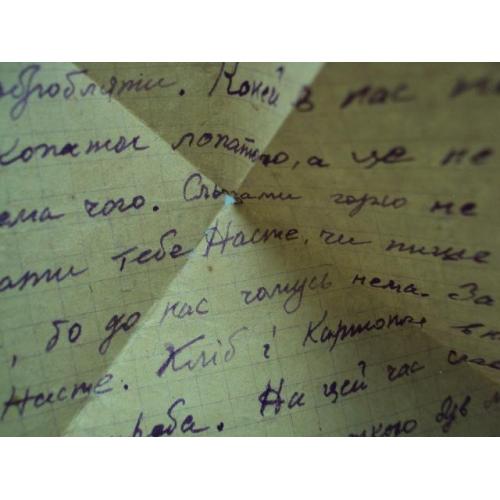 обробляти. Коней в нас
копати лопатою, а це не
ема чого. Сльозами горю не
ати тебе Насте, чи пише
, бо до нас чомусь нема. За
Насте. Хліб і Картопля в
реба. На цей час
ткого був